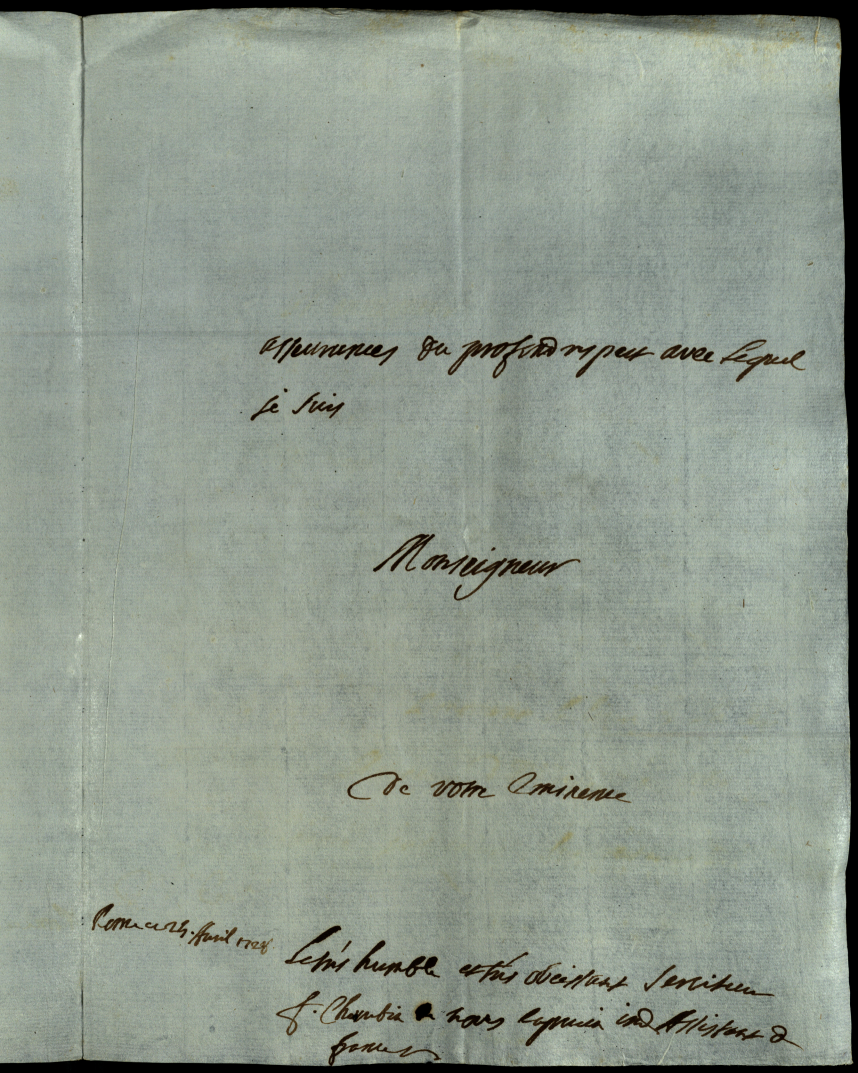 asseurances du profond respect avec lequel
je suis
Monseigneur
De votre Eminence
Rome ce 24. Avril 1728
Le tres humble et tres obeissant serviteur
f. Cherubin de capucin ind Assistant d
france